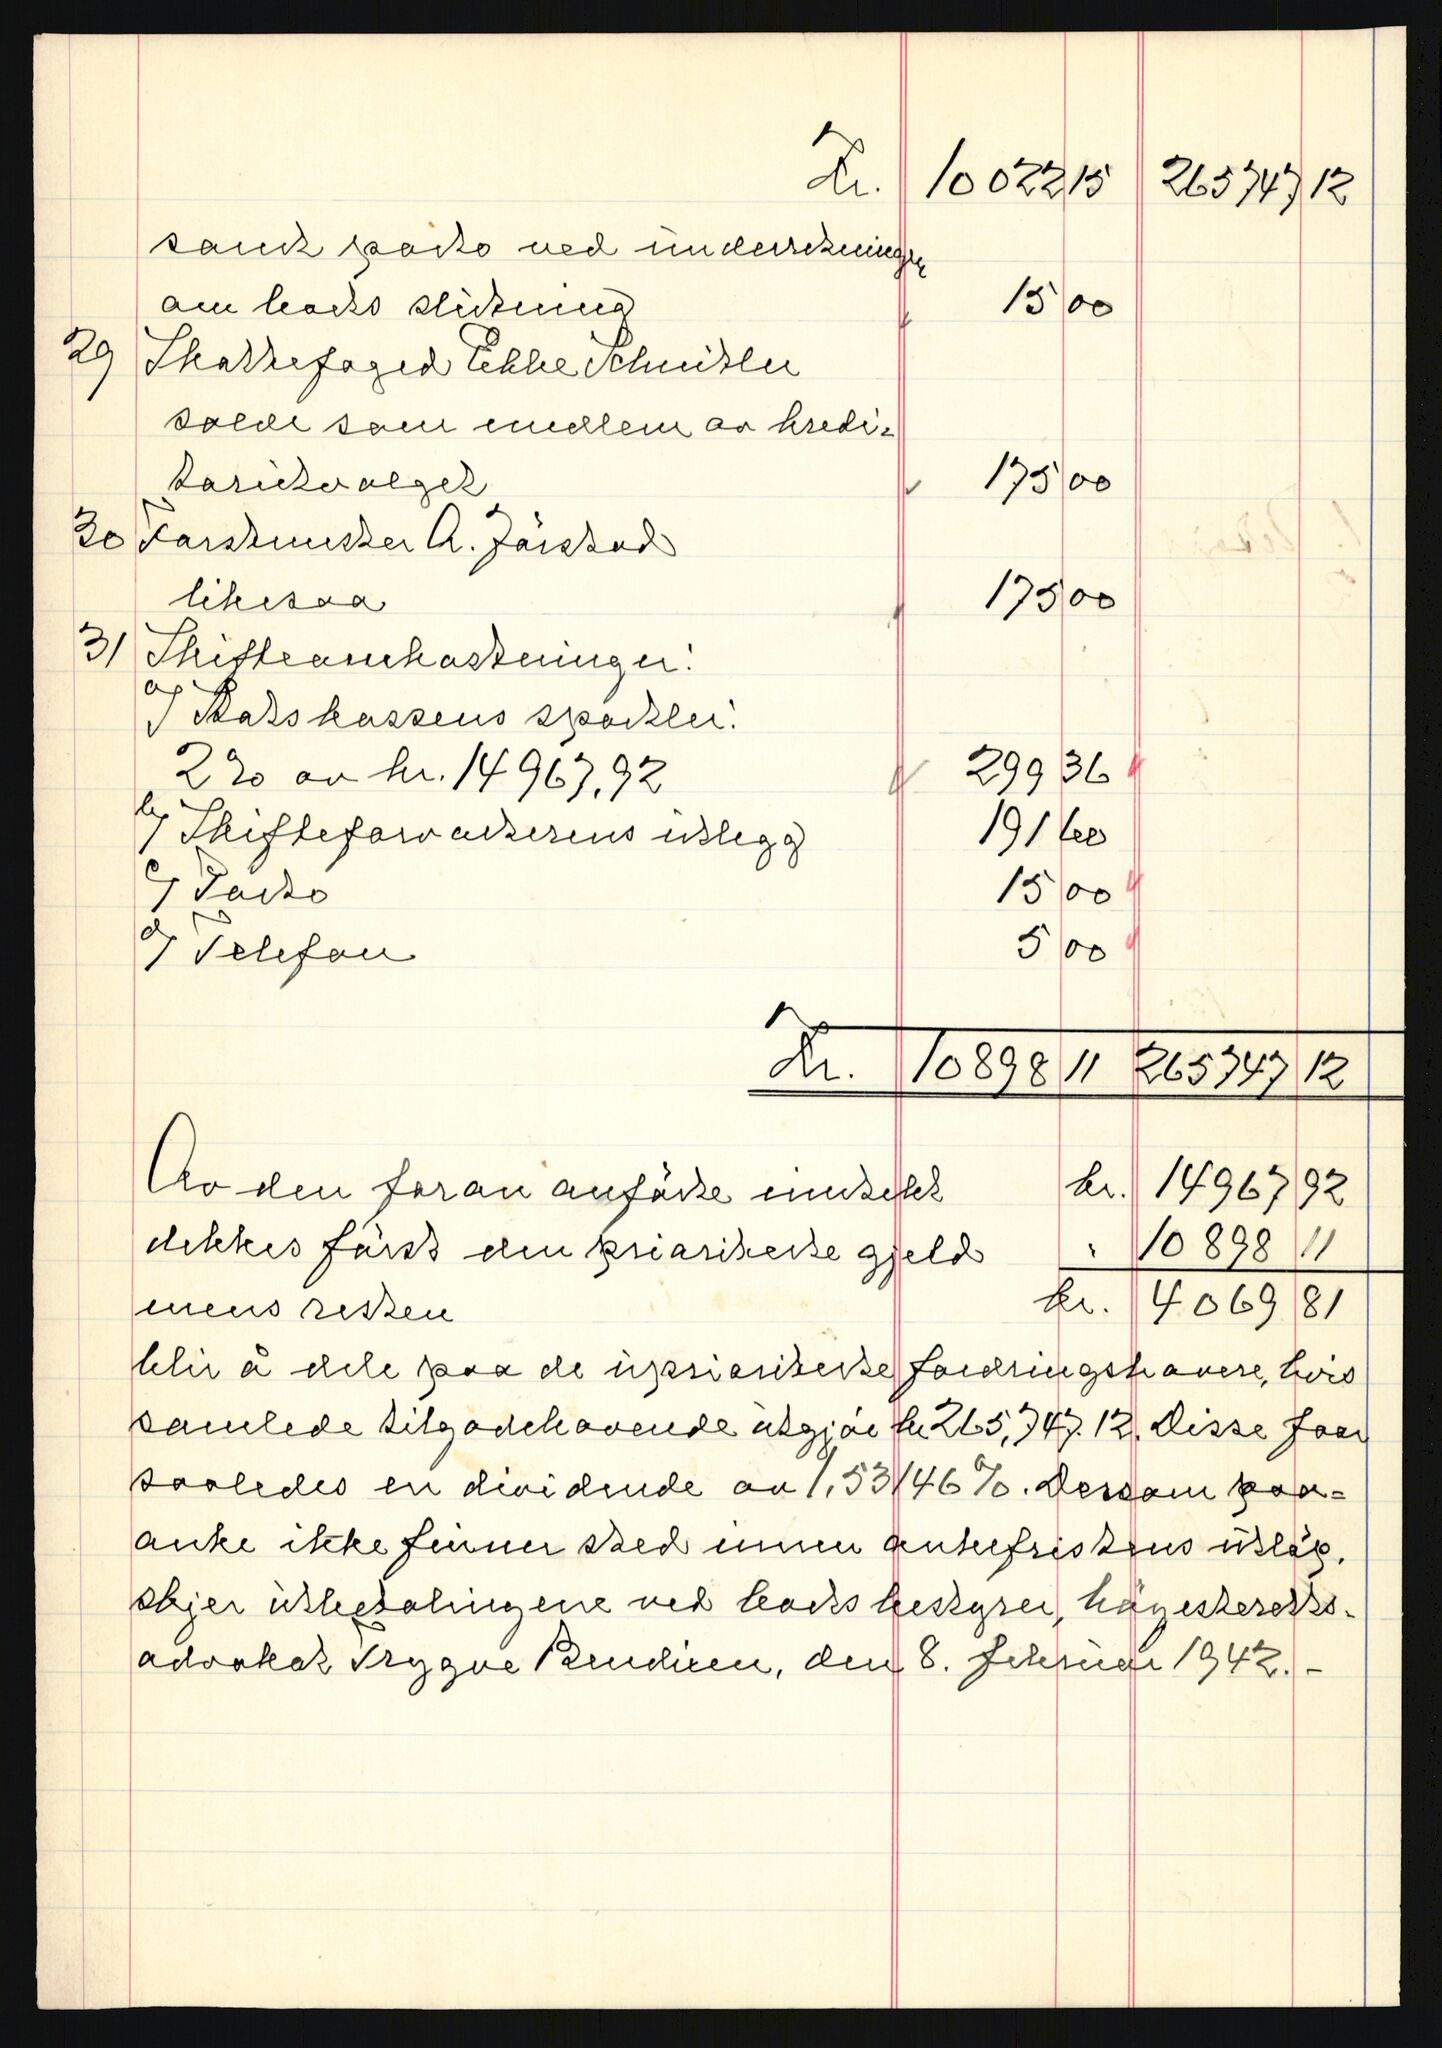 Kr. 10022 15 265747 12
samt porto ved underretningen
om boets slutning " 15 00
29 Skattefoged Ebbe Schnitler
salær som medlem av kredi-
torutvalget " 175 00
30 Forstmester A. Jörstad
likesaa " 175 00
31 Skifteomkostninger:
a) Statskassens sportler:
2% av kr. 14967,92 " 299 36
b) Skifteforvalterens utlegg 191 60
c) Porto 15 00
d) Telefon 5 00
Kr. 10898 11 265747 12
Av den foran anförte inntekt kr. 14967 92
dekkes först den prioriterte gjeld " 10898 11
mens resten kr. 4069 81
blir å dele paa de uprioriterte fordringshavere, hvis
samlede tilgodehavende utgjör kr 265,747.12. Disse faar
saaledes en dividende av 1,53146%. Dersom paa-
anke ikke finner sted innen ankefristens utlöp,
skjer utbetalingene ved boets bestyrer, höyesteretts-
advokat Trygve Bendixen, den 8. februar 1942. -